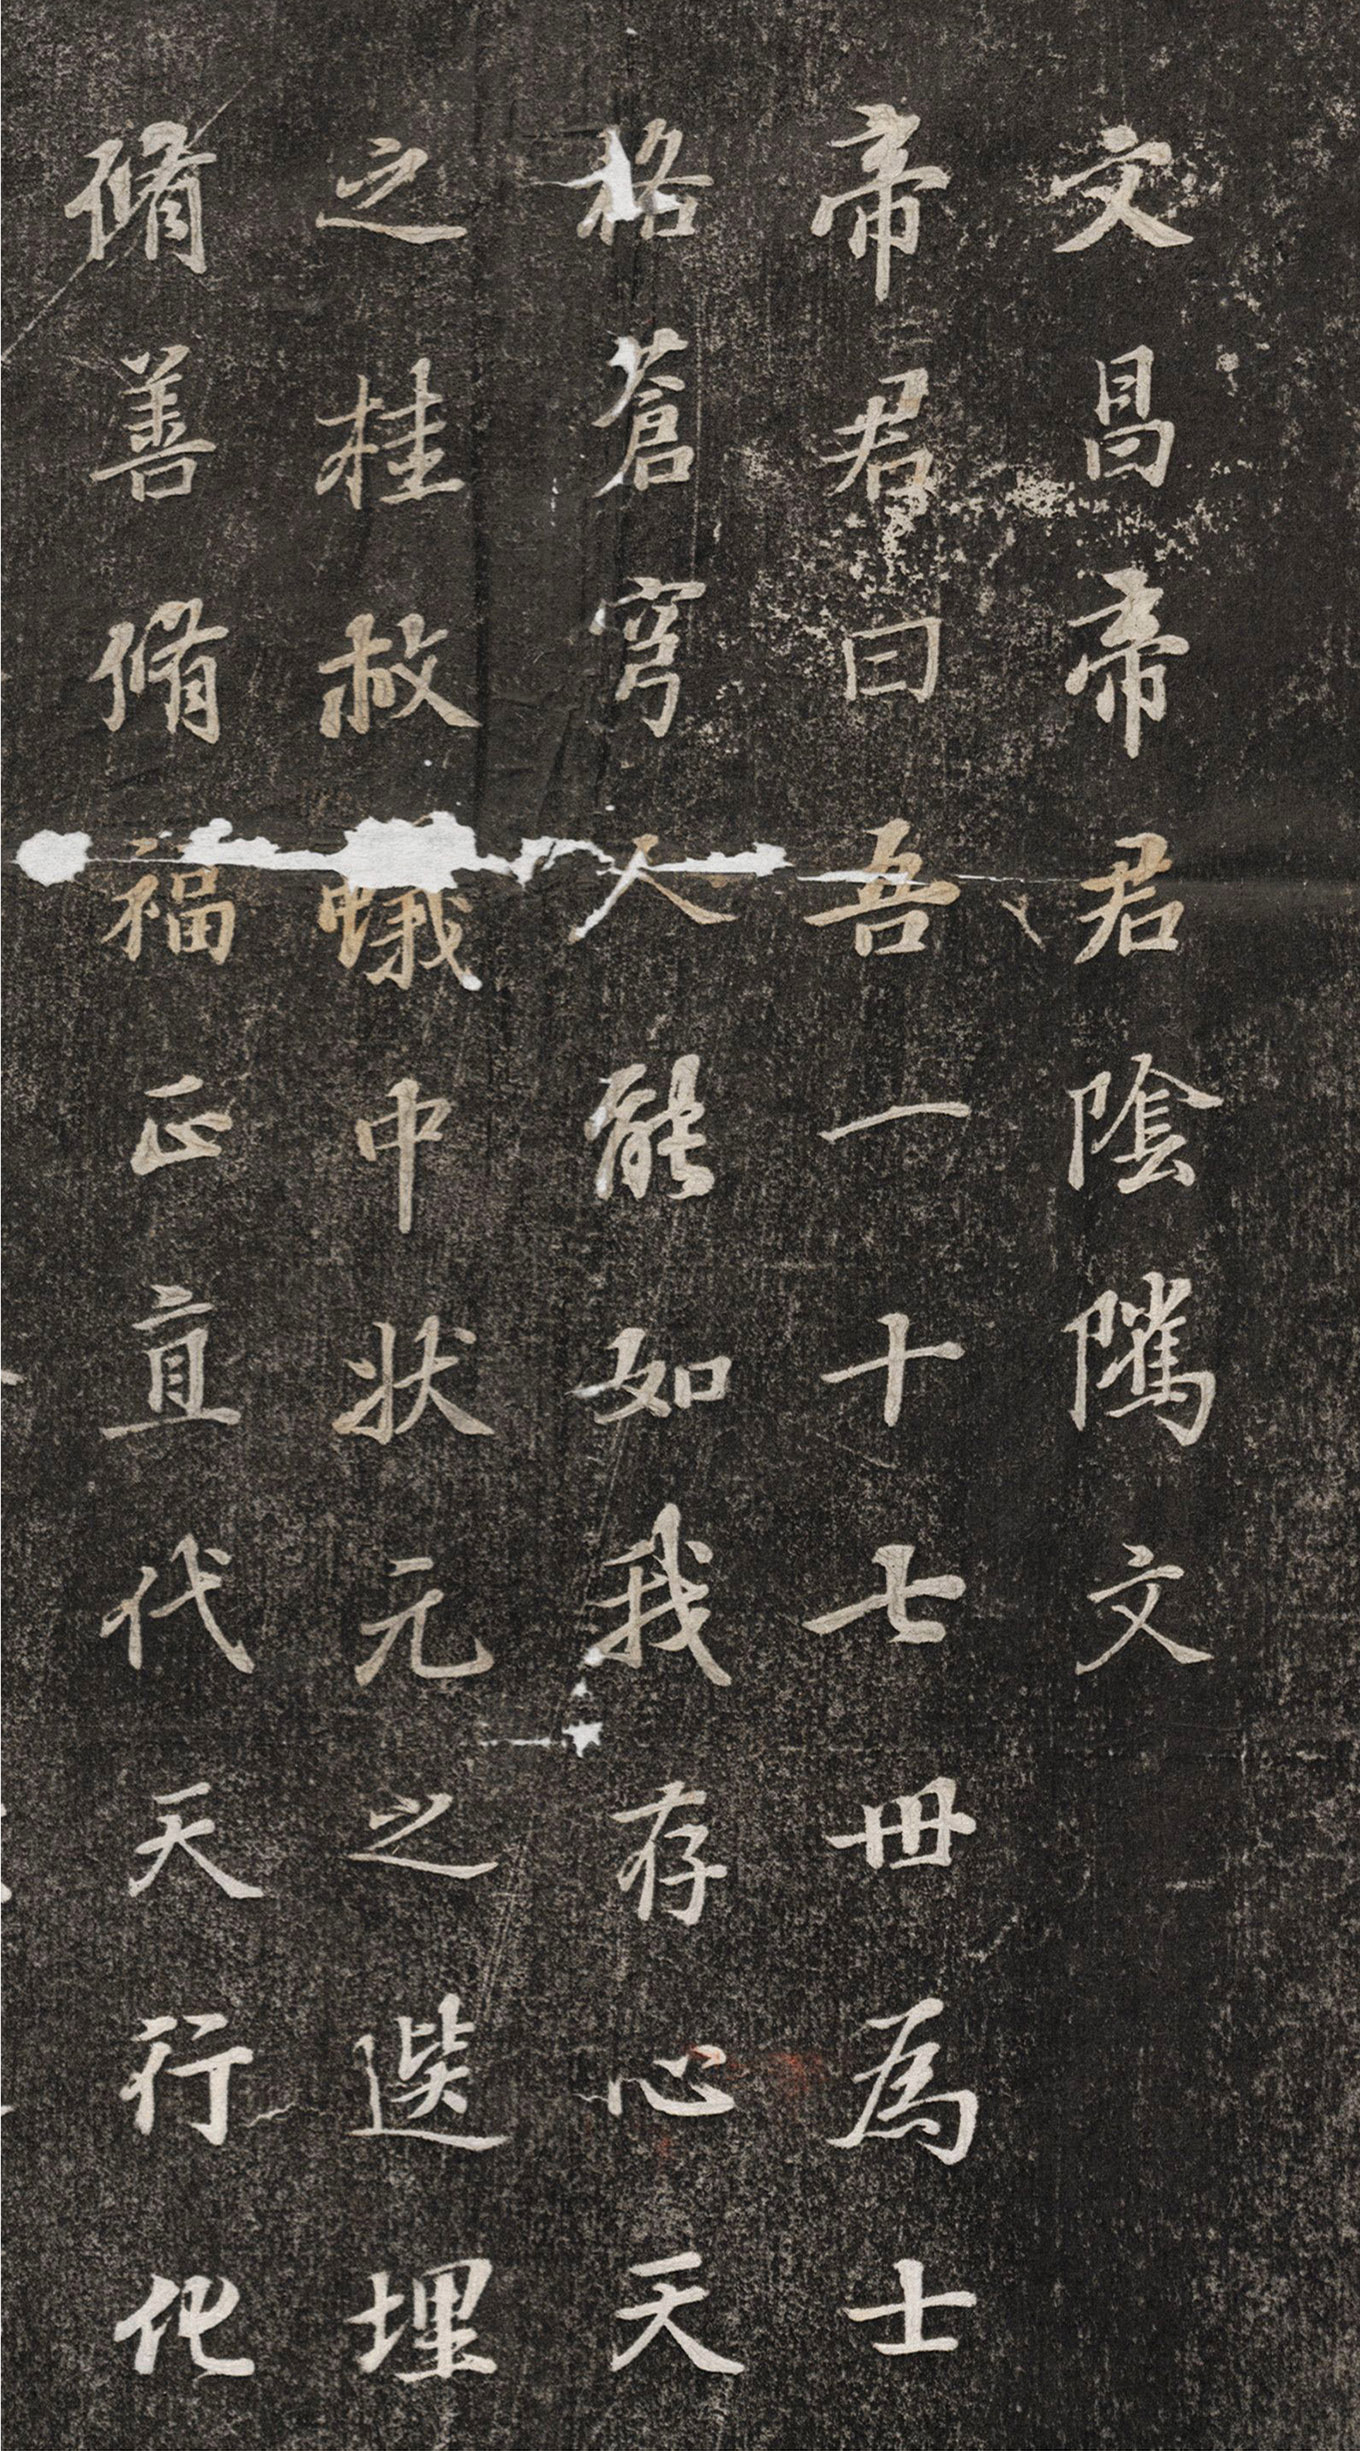 文昌帝君陰隲文
帝君曰吾一十七世為士
格蒼穹人能如我存心天
之桂救蟻中狀元之選埋
脩善脩福正直代天行化